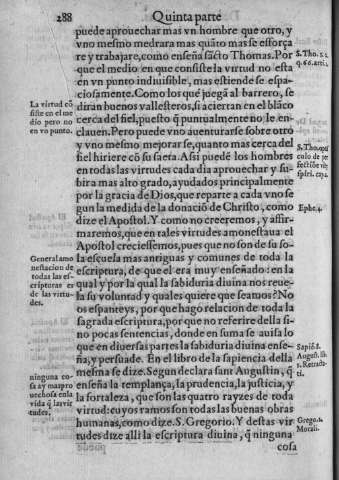 288 Quinta parte
puede aprouechar mas vn hombre que otro, y
vno mesmo medrara mas quāto mas se esforça
re y trabajare, como enseña sācto Thomas. Por
que el medio en que consiste la virtud no esta
en vn punto indiuisible, mas estiende se espa-
ciosamente. Como los que juegā al barrero, se
diran buenos vallesteros, si aciertan en el blāco
cerca del fiel, puesto q̄ puntualmente no le en-
clauen. Pero puede vno auenturarse sobre otro
y vno mesmo mejorarse, quanto mas cerca del
fiel hiriere cō su saeta. Asi puedē los hombres
en todas las virtudes cada dia aprouechar y su-
bira mas alto grado, ayudados principalmente
por la gracia de Dios, que reparte a cada vno se
gun la medida de la donaciō de Christo, como
dize el Apostol. Y como no creeremos, y affir-
maremos, que en tales virtudes amonestaua el
Apostol creciessemos, pues que no son de su so-
la escuela mas antiguas y comunes de toda la
escriptura, de que el era muy enseñado: en la
qual y por la qual la sabiduria diuina nos reue-
la su voluntad y quales quiere que seamos? No
os espanteys, por que hago relacion de toda la
sagrada escriptura, por que no referire della si-
no pocas sentencias, donde en suma se auisa lo
que en diuersas partes la sabiduria diuina ense-
ña, y persuade. En el libro de la sapiencia della
mesma se dize. Segun declara sant Augustin, q̄
enseña la templança, la prudencia, la justicia, y
la fortaleza, que son las quatro rayzes de toda
virtud: cuyos ramos son todas las buenas obras
humanas, como dize. S. Gregorio. Y destas vir
tudes dize alli la escriptura diuina, q̄ ninguna
cosa
La virtud cō
siste en el me
dio pero no
en vn punto.
General amo
nestacion de
todas las es-
cripturas es
de las virtu-
des.
ninguna co-
sa ay mas pro
uechosa en la
vida q̄ las vir
tudes,
S. Tho. 2.2.
q. 66. arti.
S. Tho.
Ephe. 4.
Sapiē. 8.
August. li.
1. Retracta-
ti.
Grego. li.
Morali.